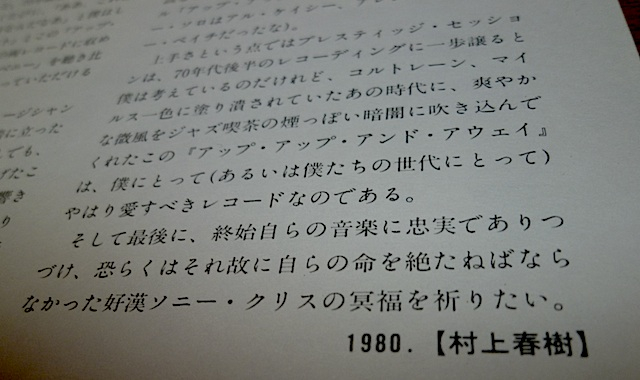 ル『アップ・アッ
ー・ソロはアル・ケイシー、
ー・ベイチだったな)。
上手さという点ではプレスティッジ・セッショ
ンは、70年代後半のレコーディングに一歩譲ると
僕は考えているのだけれど、コルトレーン、マイ
ルス一色に塗り潰されていたあの時代に、爽やか
な微風をジャズ喫茶の煙っぽい暗闇に吹き込んで
くれたこの『アップ・アップ・アンド・アウェイ』
は、僕にとって(あるいは僕たちの世代にとって)
やはり愛すべきレコードなのである。
そして最後に、終始自らの音楽に忠実でありつ
づけ、恐らくはそれ故に自らの命を絶たねばなら
なかった好漢ソニー・クリスの冥福を祈りたい。
1980.【村上春樹】